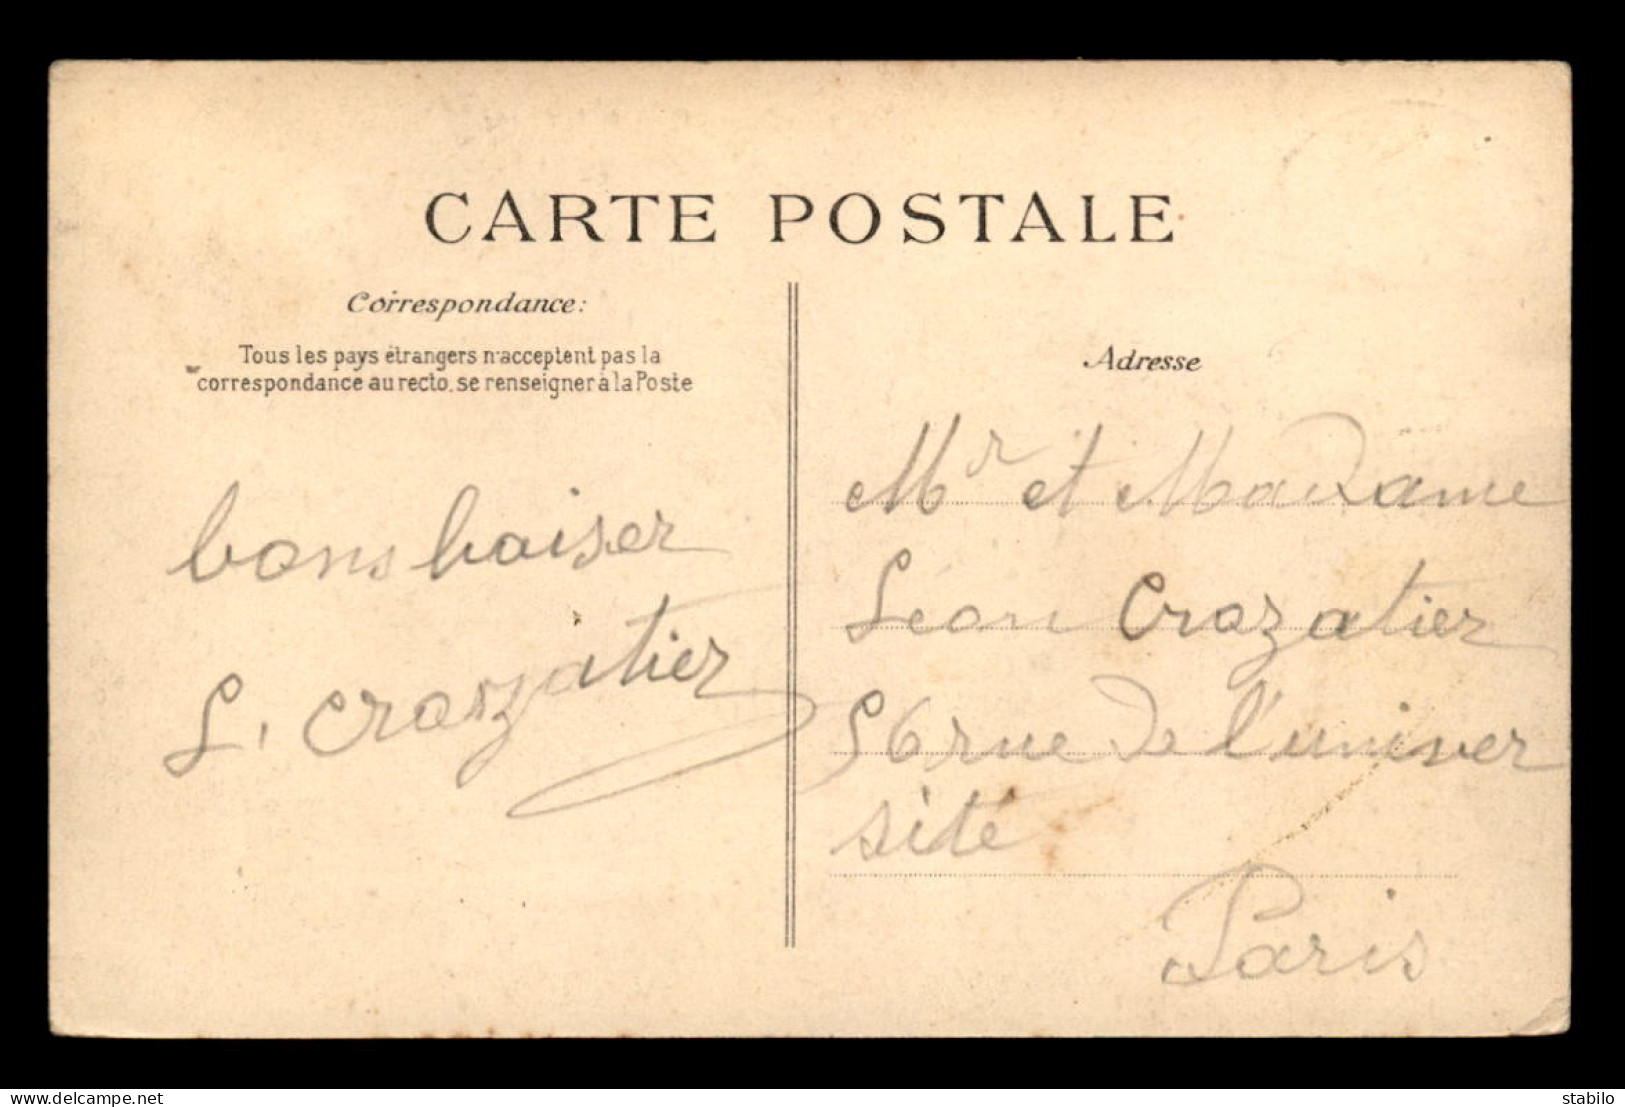 CARTE POSTALE
Correspondance:
Tous les pays étrangers n'acceptent pas la
correspondance au recto, se renseigner à la Poste
bons baiser
L. Crozatier
Adresse
Mr et Madame
Léon Crozatier
56 rue de l'univer
sité
Paris
www.delcampe.net
stabilo